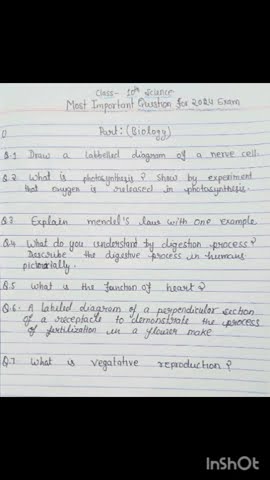 Class- 10th Science
Most Important Question for 2024 Exam
Part: (Biology)
Q.1 Draw a labelled diagram of a nerve cell.
Q.2 What is photosynthesis? Show by experiment
that oxygen is released in photosynthesis.
Q.3 Explain mendel's laws with one example
Q.4 What do you understand by digestion process?
Describe the digestive process in humans
pictorially.
Q.5 What is the function of heart?
Q.6. A labeled diagram of a perpendicular section
of a receptacle to demonstrate the process
of fertilization in a flower make
Q.7 What is vegatative reproduction?
InShOt